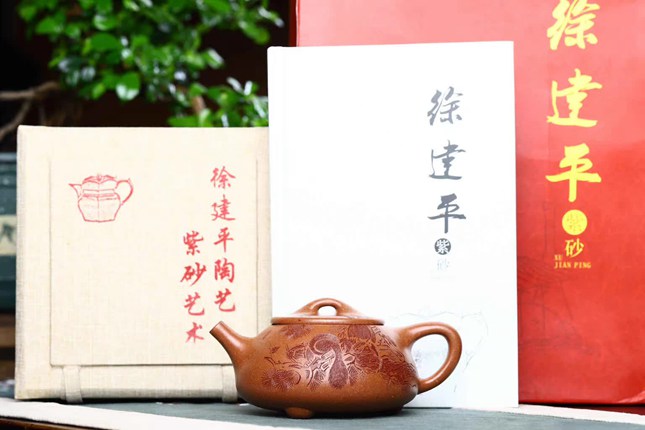 徐建平陶艺
紫砂艺术
徐建平
紫砂
徐建平
紫砂
XU
JIAN PING